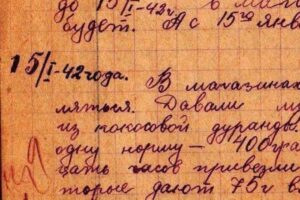 до 15/I-42г. в мага
будет. А с 15го янв
15/I-42 года.
В магазинах
мяться. Давали м
из кокосовой дуранды
одну норму — 400гра
цать часов привезли
торые дают 75г в